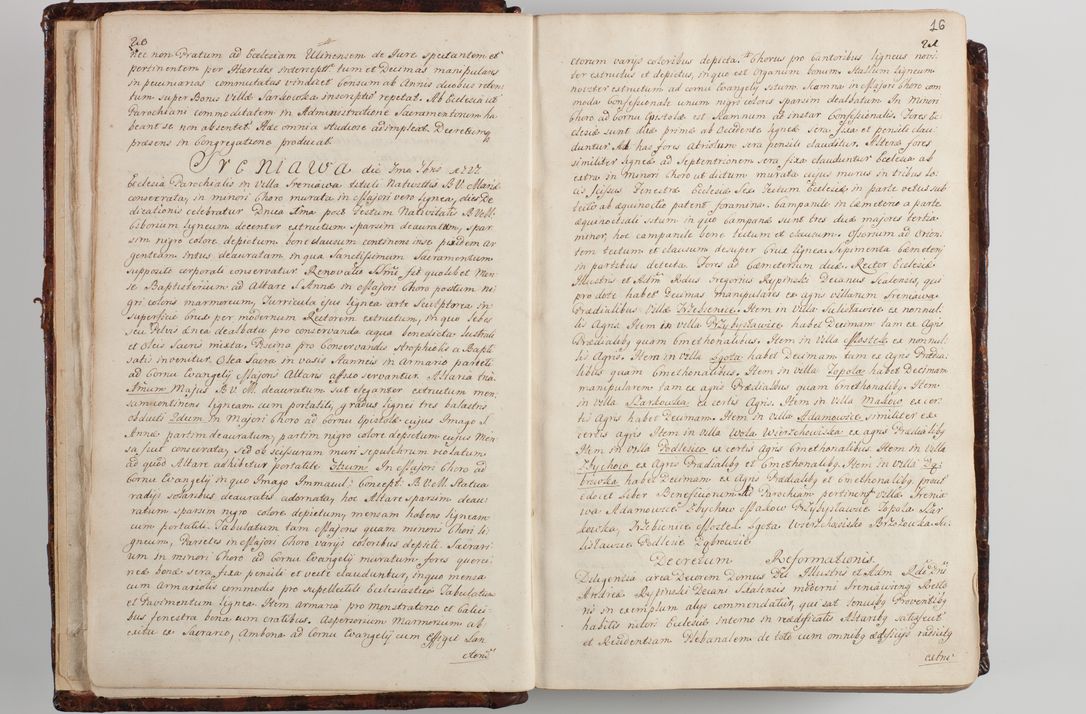 nec non Pratum ad Ecclesiam Ulinensem de Jure spectantem et
pertinentem per Hæredes intercept. tum et Decimas manipulares
in pecuniarias commutatas vindicet Censum ab Annis duobus reten
tum super Bonis Villæ Sardowka inscriptis repetat. Ab Ecclesia ut
Parochiani commoditatem in Administratione Sacramentorum ha
beant se non absentet. Hæc omnia studiose adimpleat Decretumq
præsens in Congregatione producat
Jreniawa die Ima 7bris 1727.
Ecclesia Parochialis in Villa Jreniawa tituli Nativitatis B.V. Mariæ
consecrata, in minori Choro murata in Majori vero lignea, dies De
dicationis celebratur Dnica Ima post Festum Nativitatis B.V.M.
Ciborium ligneum decenter extructum sparsim deauratum, spar
sim nigro colore depictum bene clausum continens in se pixidem ar
genteam intus deauratam in qua Sanctissimum Sacramentum
supposito corporali conservatur Renovatio Ssmi fit quolibet Men
se Baptisterium ad Altare S. Annæ in Majori Choro positum ni
gri coloris marmoreum, Turricula ejus lignea arte Sculptorea in
superficie Crux per modernum Rectorem extructum, in quo lebes
seu Pelvis Ænea dealbata pro conservanda aqua benedicta lustrali
et Oleis Sacris mixta. Piscina pro Conservandis Strophiolis a Bapti
satis invenitur. Olea Sacra in vasis stanneis in Armario parieti
ad Cornu Evangely Majoris Altaris affixo servantur. Altaria tria
1mum Majus B.V.M. deauratum sat eleganter extructum men
sam continens ligneam cum portatili, gradus lignei tres balastris
obducti 2dum in Majori Choro ad Cornu Epistolæ cujus Imago S.
Annæ partim deauratum, partim nigro colore depictum cujus Men
sa fuit consecrata, sed ob scissuram muri sepulchrum violatum
ad quod Altare adhibetur portatile 3tium In Majori Choro ad
Cornu Evangely in quo Imago Immacul: Concept: B.V.M. Statua
radijs solaribus deauratis adornata, hoc Altare sparsim deau
ratum sparsim nigro colore depictum, mensam habens ligneam
cum portatili. Tabulatum tam Majoris quam minoris Chori li
gneum, Parietes in Majori Choro varijs coloribus depicti. Sacrari
um in minori Choro ad Cornu Evangely muratum fores querci
neæ bonæ sera fixa pensili et vecte clauduntur, in quo mensa
cum Armariolis commodis pro supellectili Ecclesiastica Tabulatum
et Pavimentum lignea. Item armaria pro Monstratorio et Calici
bus fenestra bona cum cratibus. Aspersorium Marmoreum ab
exitu ex Sacrario, Ambona ad Cornu Evangely cum Effigie San
ctorū
16
ctorum varijs coloribus depicta. Chorus pro Cantoribus ligneus novi
ter extructus et depictus, in quo est Organum bonum. Stallum ligneum
noviter extructum ad cornu Evangely situm. Scamna in Majori Choro com
moda Confessionale unum nigri coloris sparsim dealbatum. In minori
Choro ad Cornu Epistolæ est Scamnum ad instar Confessionalis. Fores Ec
clesiæ sunt duæ prima ab Occidente ligneæ sera fixa et pensili clau
duntur Ad has fores Atriolum sera pensili clauditur. Alteræ fores
similiter ligneæ ad Septentrionem sera fixa clauduntur Ecclesia ab
extra in minori Choro ut dictum murata cujus murus in tribus lo
cis scissus Fenestræ Ecclesiæ Sex Tectum Ecclesiæ in parte vetus sub
tecto ab æquinoctio patent foramina. Campanile in Cæmeterio a parte
æquinoctiali situm in quo Campanæ sunt tres duæ majores tertia
minor, hoc campanile bene tectum et clausum. Ossorium ad Orien
tem tectum et clausum desuper Crux lignea. Sepimenta Cæmetery
in partibus detecta Fores ad Cæmeterium duæ. Rector Ecclesiæ
Illustris et Adm Rndus Gregorius Rypinski Decanus Scalensis, qui
pro dote habet Decimas manipulares ex agris villarum Jreniawa
Prædialibus Villæ Trzebienice. Item in Villa Sulislawice ex nonnul
lis Agris Item in villa Przybyslawice habet Decimam tam ex Agris
Prædialibus quam Cmethonalibus. Item in Villa Mostek ex nonnul
lis Agris. Item in villa Lgota habet Decimam tum ex Agris Prædia
libus quam Cmethonalibus. Item in Villa Zapola habet Decimam
manipularem tam ex agris Prædialibus quam Cmethonalibq. Item
in Villa Karlowka ex certis Agris. Item in Villa Makow ex cer
tis Agris habet Decimam. Item in Villa Adamowice similiter ex
certis agris Item in Villa Wola Wierzchowiska ex agris Prædialibq
Item in Villa Podlesice ex certis Agris Cmethonalibus Item in Villa
Zbychow ex Agris Prædialibq et Cmethonalibq. Item in Villa Dą
browka habet Decimam ex Agris Prædialibq et Cmethonalibq, prout
edocet Liber Beneficiorum Ad Parochiam pertinent Villæ Jrenia
wa Adamowice Zbychow Makow Przybyslawice Zapola Kar
lowka, Trzebienice Mostek Lgota Wierzchowisko Brzozowka Su
lislawice Podlesie Dąbrowice
Decretum Reformationis.
Diligentia circa Decorem Domus Dei Illustris et Adm Rdi Dni
Andreæ Rypinski Decani Scalensis moderni Jreniawinq Recto
ris in exemplum alijs commendatur, qui sat tenuibq Proventibq
habitis nitori Ecclesiæ interno in reædificatis Altaribq satisfecit
et Residentiam Plebanalem de toto cum omnibq ædificijs radicitq
extruc